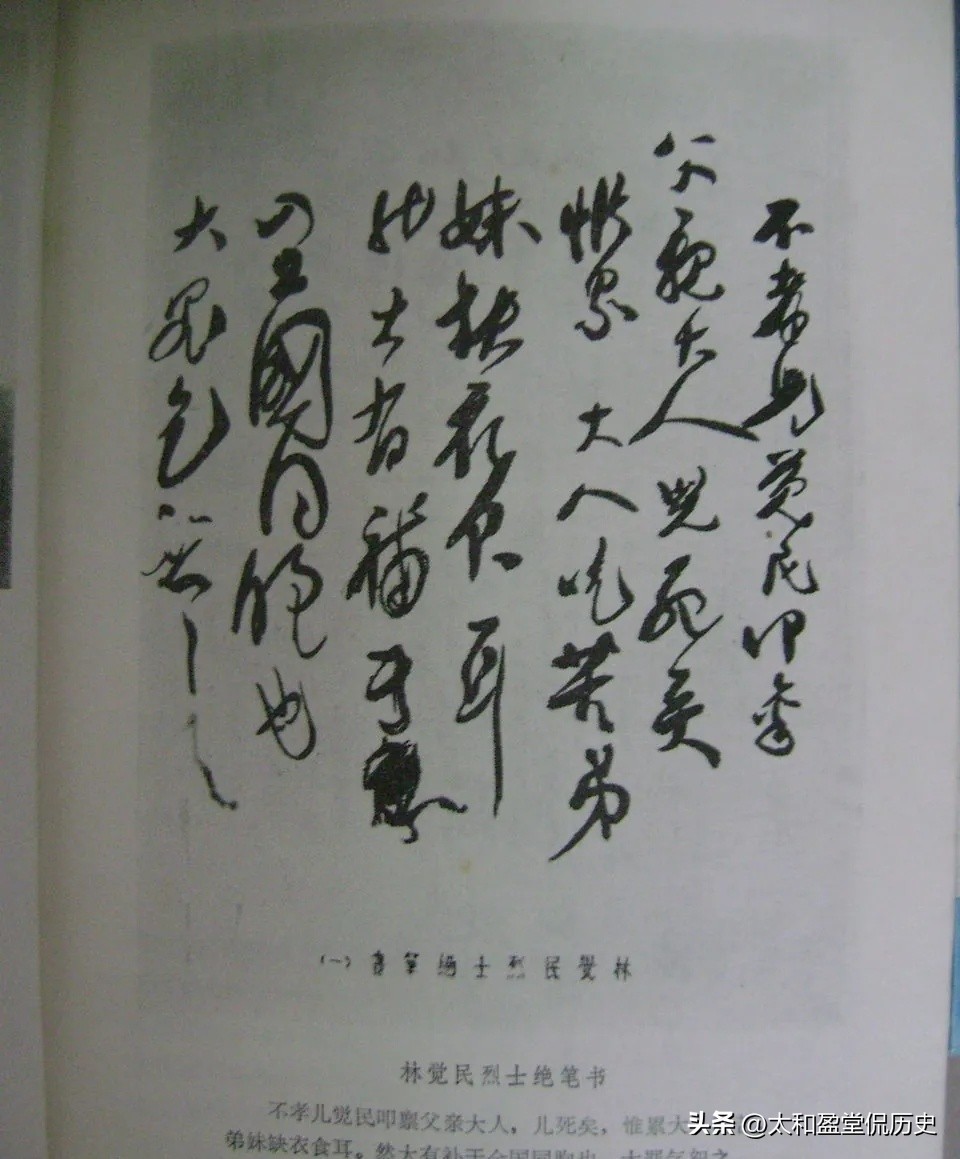 不孝兒覺民叩稟
父親大人兒死矣
惟累大人吃苦弟
妹缺衣食耳
然大有補于
全國同胞也
大罪乞恕之
林覺民烈士絕筆書(一)
林觉民烈士绝笔书
不孝儿觉民叩禀父亲大人，儿死矣，惟累大
弟妹缺衣食耳。然大有补于全国同胞也，大罪乞恕之
头条 @太和盈堂侃历史